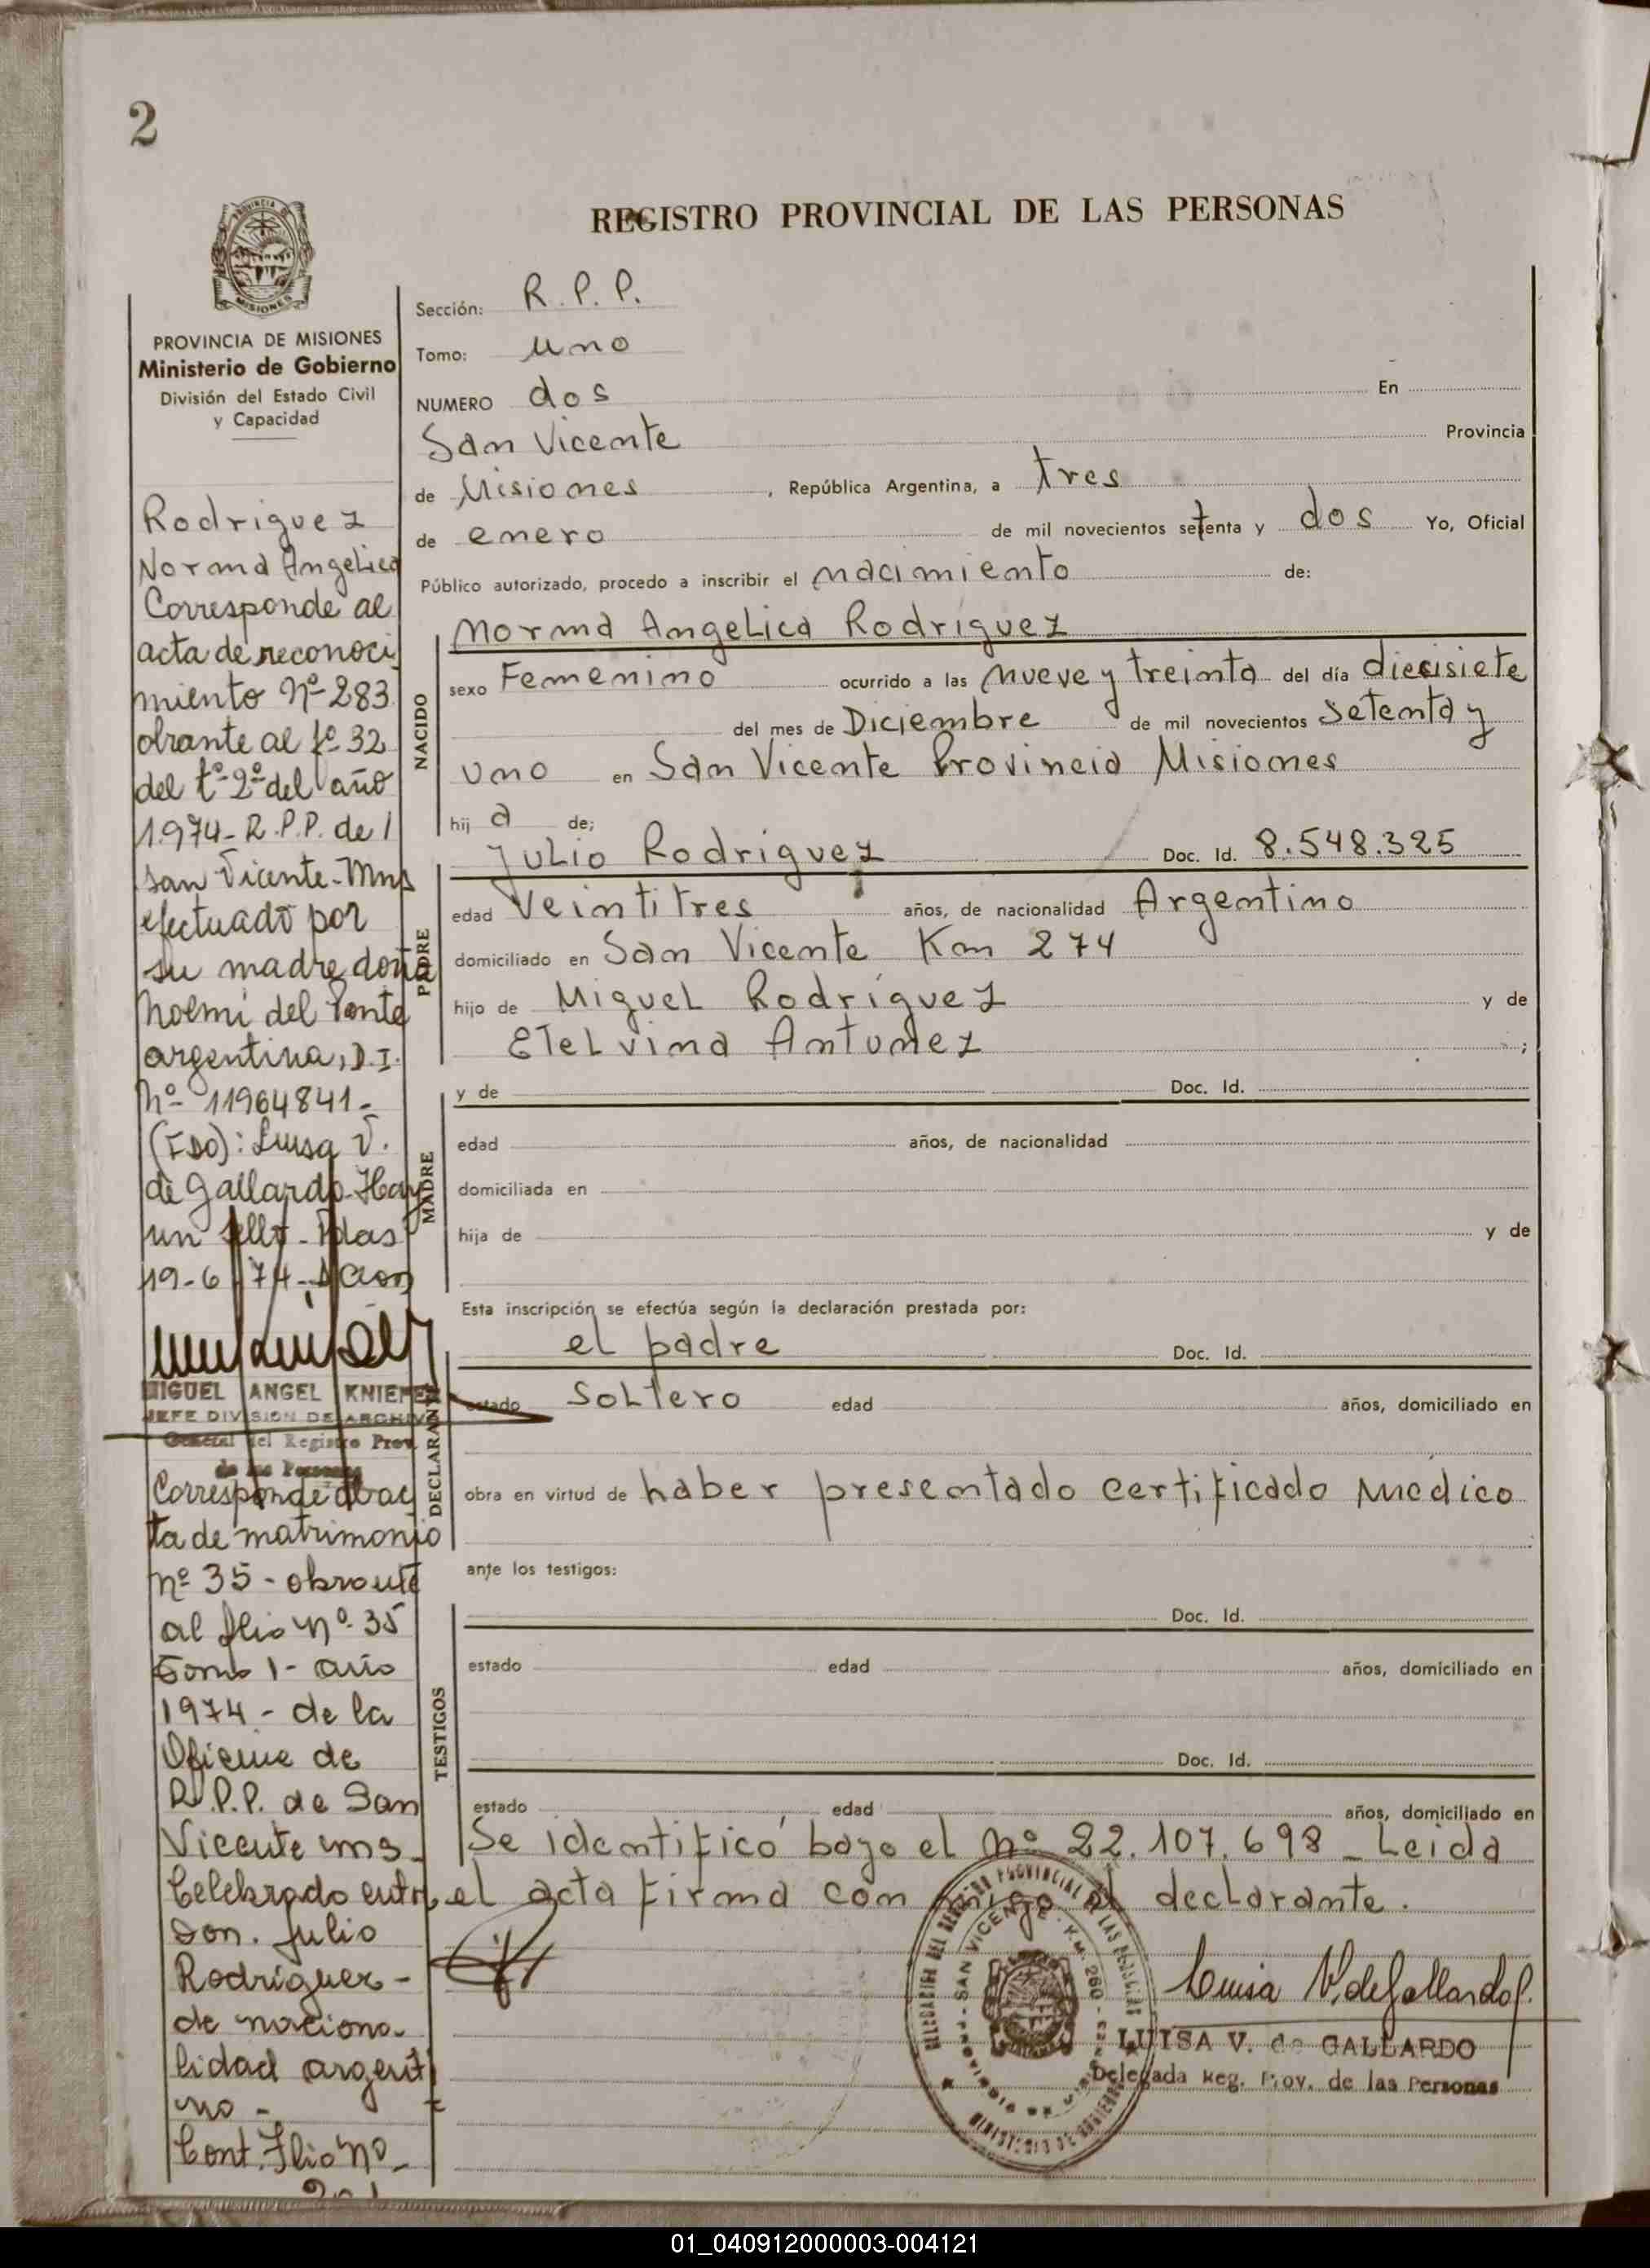 2
REGISTRO PROVINCIAL DE LAS PERSONAS
PROVINCIA DE MISIONES
Ministerio de Gobierno
División del Estado Civil
y Capacidad
Rodriguez
Norma Angelica
Corresponde al
acta de reconoci
miento Nº 283
obrante al fº 32
del tº 2º del año
1.974 - R.P.P. de
San Vicente - Mns
efectuado por
su madre doña
Noemi del
argentina, D.I.
Nº 11964841 -
(FDO): Luisa V.
de Gallardo - Hay
un sello - Pdas
19-6-74 -
MIGUEL ANGEL
JEFE DIVISION DE ARCHIVO
General del Registro Prov.
de las Personas
Corresponde al ac
ta de matrimonio
nº 35 - obrante
al flio Nº 35
Tomo 1 - año
1974 - de la
Oficina de
R.P.P. de San
Vicente mns -
Celebrado entre
Don. Julio
Rodriguez -
de naciona-
lidad argenti
no -
Cont. Flio Nº -
Sección: R. P. P.
Tomo: uno
NUMERO dos En
San Vicente Provincia
de Misiones , República Argentina, a tres
de enero de mil novecientos setenta y dos Yo, Oficial
Público autorizado, procedo a inscribir el nacimiento de:
NACIDO
Norma Angelica Rodriguez
sexo Femenino ocurrido a las nueve y treinta del día diecisiete
del mes de Diciembre de mil novecientos setenta y
uno en San Vicente Provincia Misiones
hij a de;
PADRE
Julio Rodriguez Doc. Id. 8.548.325
edad Veintitres años, de nacionalidad Argentino
domiciliado en San Vicente Km 274
hijo de Miguel Rodriguez y de
Etelvina Antunez ;
MADRE
y de Doc. Id.
edad años, de nacionalidad
domiciliada en
hija de y de
Esta inscripción se efectúa según la declaración prestada por:
DECLARANTE
el padre Doc. Id.
estado Soltero edad años, domiciliado en
obra en virtud de haber presentado certificado medico
ante los testigos:
TESTIGOS
Doc. Id.
estado edad años, domiciliado en
Doc. Id.
estado edad años, domiciliado en
Se identificó bajo el Nº 22.107.698 - Leida
el acta firma con migo el declarante.
Luisa V. de Gallardo
LUISA V. de GALLARDO
Delegada Reg. Prov. de las Personas
01_040912000003-004121